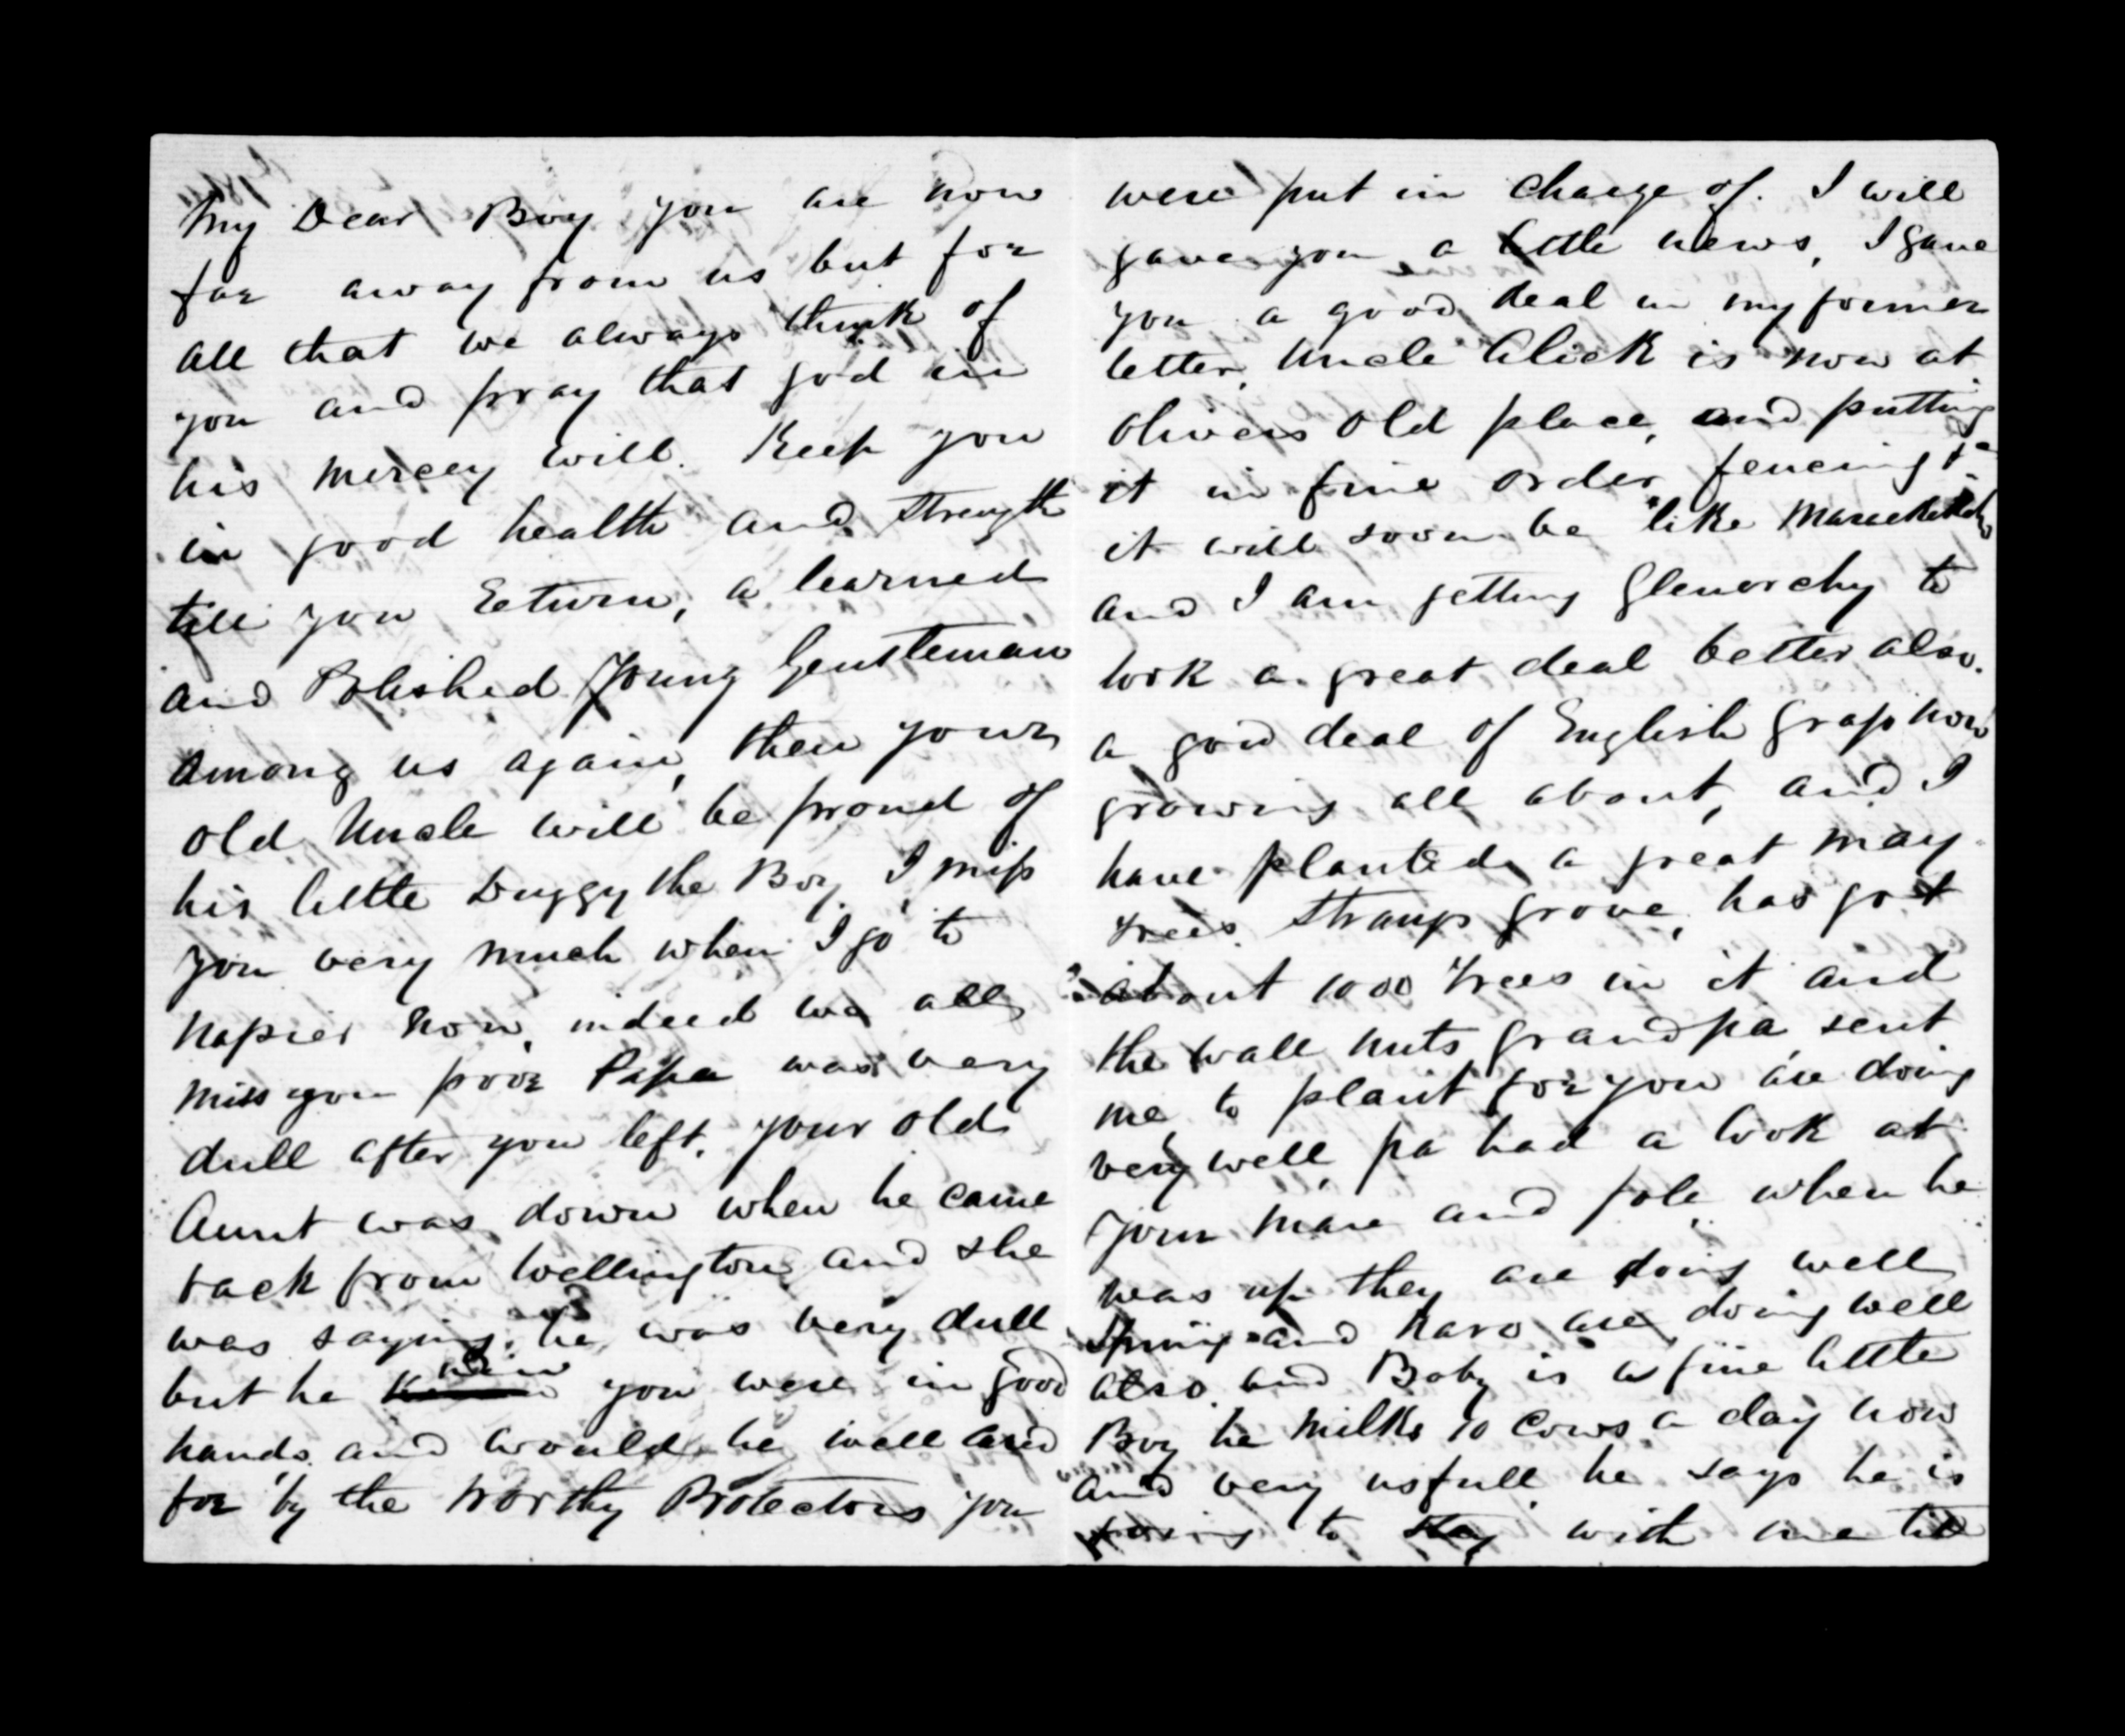 My Dear Boy you are now
far away from us but for
all that we always think of
you and pray that god in
his mercey will. Keep you
in good health and strength
till you Return, a learned
and Polished Young Gentleman
among us again, then your
old Uncle will be proud of
his little Duggy the Boy, I miss
you very much when I go to
Napier now, indeed we all
miss you poor Papa was very
dull after you left. your old
Aunt was down when he came
back from Wellington and she
was saying he was very dull
but he knew you were in good
hands, and would be well cared
for by the worthy Protectors you
were put in charge of. I will
gave you a little news, I gave
you a good deal in my former
letter, Uncle Alick is now at
Olivers old place, and putting
it in fine order fencing &c
it will soon be like
and I am getting Glenorchy to
look a great deal better also.
a good deal of English grass now
growing all about, and I
have planted a great may
trees. grove, has got
about 1000 trees in it and
the wall nuts grandpa sent
me to plant for you are doing
very well, pa had a look at
your mare and fole, when he
was up they are doing well
and Karo are doing well
also. and Boby is a fine little
Boy he milks 10 Cows a day now
and very usfull he says he is
going to stay with me till